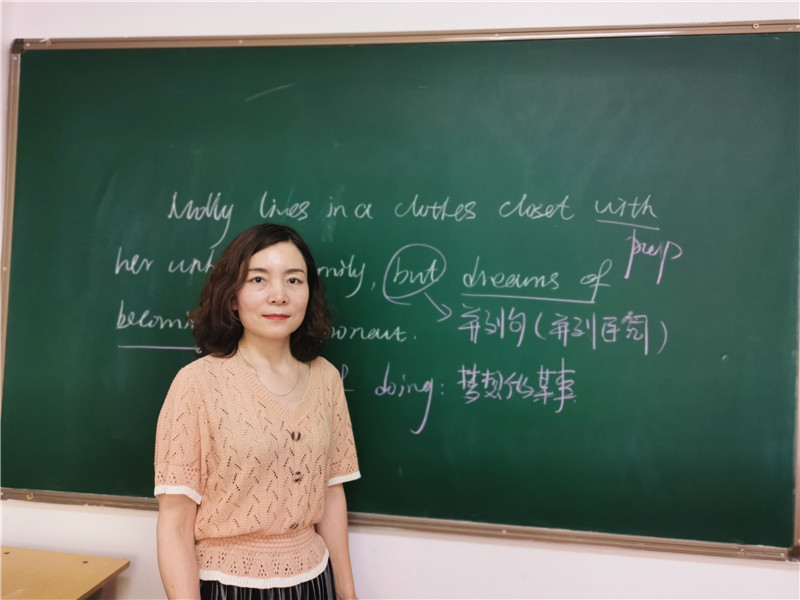 Molly lives in a clothes closet with
prep
her unh mily, but dreams of
becomi onaut.
并列句(并列连词)
f doing: 梦想做某事